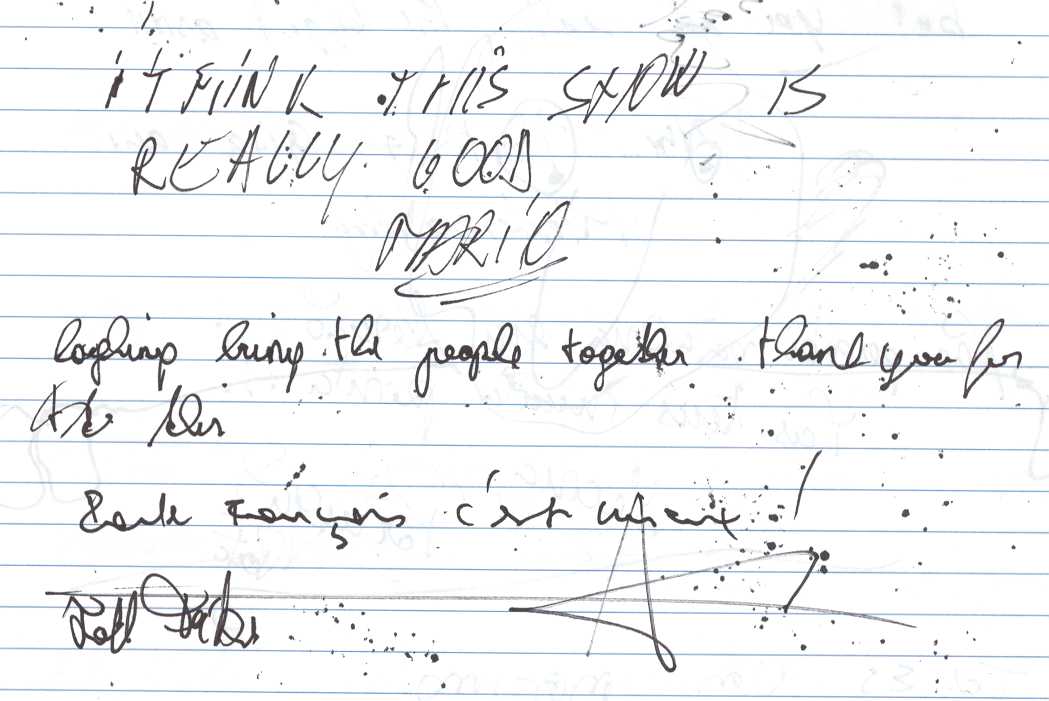 I THINK THIS SHOW IS
REALLY GOOD
MARIO
laghing bring the people together. thank you for
the
français c'est mieux !